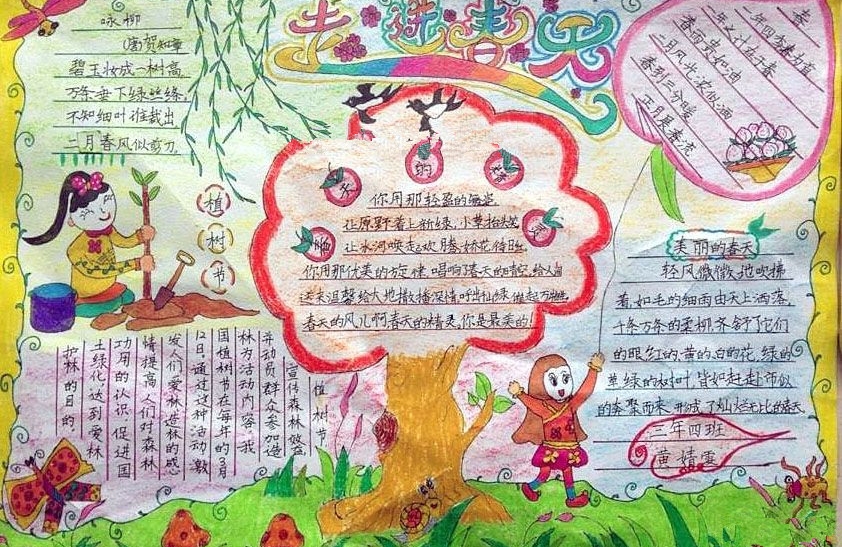 走进春天
咏柳
(唐)贺知章
碧玉妆成一树高,
万条垂下绿丝绦,
不知细叶谁裁出
二月春风似剪刀
植
树
节
植树节
宣传森林效益
并动员群众参加造
林为活动内容。我
国植树节在每年的3月
12日,通过这种活动,激
发人们爱林造林的感
情提高人们对森林
功用的认识,促进国
土绿化,达到爱林
护林的目的。
春
天
的
你用那轻盈的
让原野着上新绿,小草抬头笑
让冰河唤起欢腾,娇花待
你用那优美的旋律唱响
送来温馨给大地撒播深情
春天的风儿啊春天的精灵,你是最美的!
春
一年四季春为首
一年之计在于春
春雨贵如油
二月风光浓似酒
春到三分暖
正月是春
美丽的春天
轻风微微地吹拂
着,如毛的细雨由天上洒落,
千条万条的柔柳,齐舒了它们
的眼,红的黄的白的花,绿的
草,绿的树叶,皆如赶赴市似
的奔聚而来,形成了灿烂无比的春天
三年四班
黄婧雲